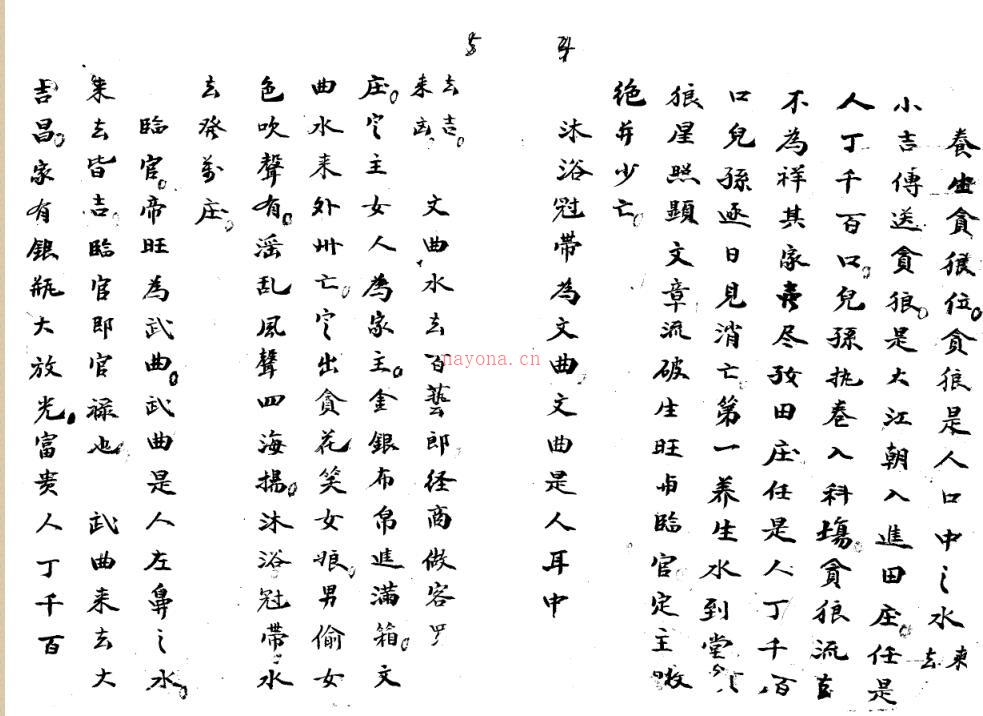 養生貪狼位。貪狼是人口中之水 来去
小吉傳送貪狼。是大江朝入進田庄。任是
人丁千百口。兒孫执卷入科場。貪狼流去
不為祥其家喪尽敗田庄任是人丁千百
口兒孫逐日見消亡。第一养生水到堂
狼星照顯文章流破生旺由臨官定主
絶并少亡。
沐浴冠帶為文曲。文曲是人耳中
去吉。
来凶
文曲水去百藝郎经商做客
庄。定主女人為家主。金銀布帛進滿箱。文
曲水来外卅亡。定出貪花笑女娘。男偷女
色吹聲有。滛乱風聲四海揚。沐浴冠帶水
去發萬庄。
臨官。帝旺為武曲。武曲是人左鼻之水。
来去皆吉。臨官即官禄也。武曲来去大
吉昌。家有銀瓶大放光。富贵人丁千百
nayona.cn